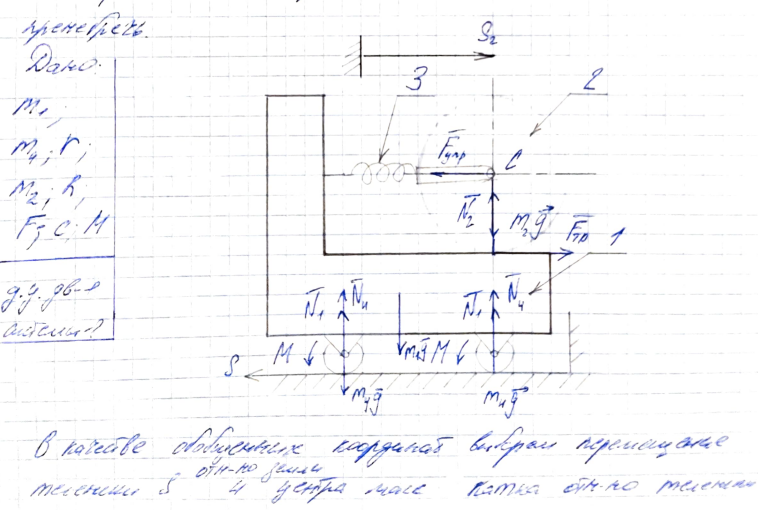 пренебречь.
Дано:
m₁;
m₄; r;
m₂; R;
F; c; M
д.у. дв-я
системы-?
S₂
3
2
F̅упр
C
N̅₂
m₂g⃗
F̅тр
1
N̅₁ N̅₄
N̅₁ N̅₄
M
m₁g⃗
M
S
m₄g⃗
m₄g⃗
В качестве обобщенных координат выбрали перемещение
отн-но земли
тележки S и центра масс катка отн-но тележки